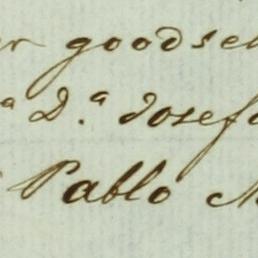 goodse
D.ª Josef
Pablo